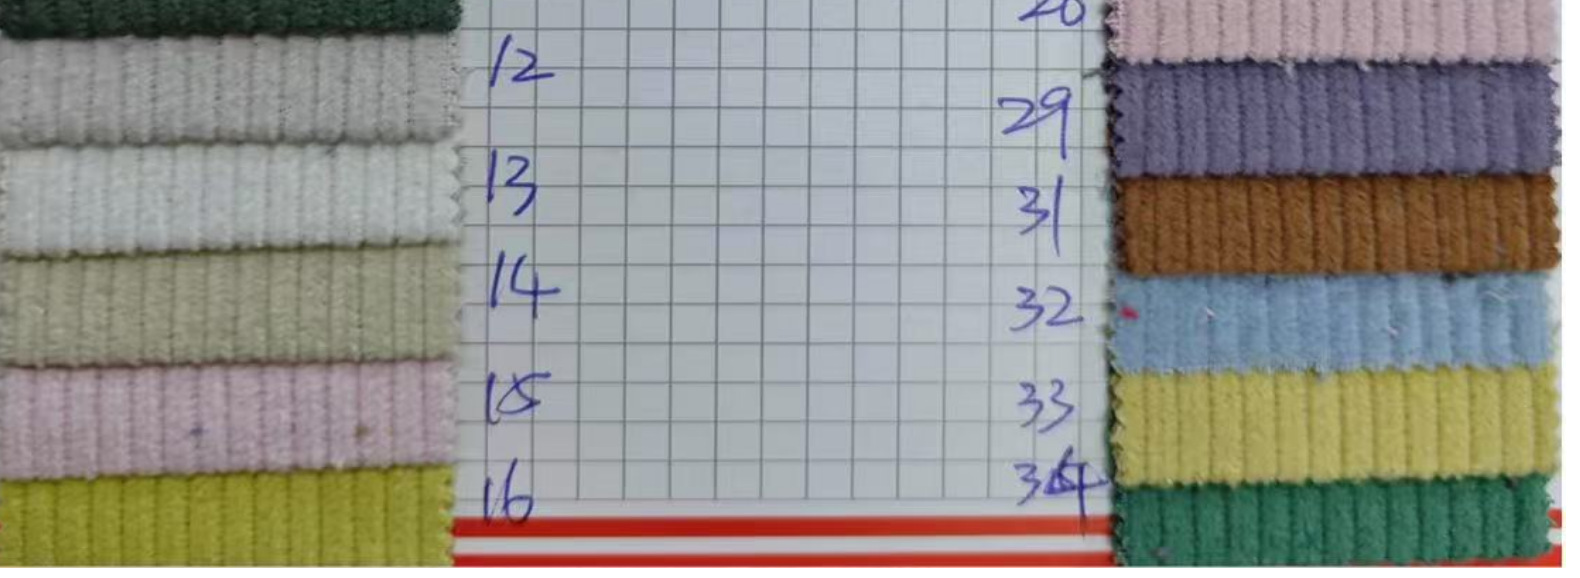 12
13
14
15
16
29
31
32
33
34